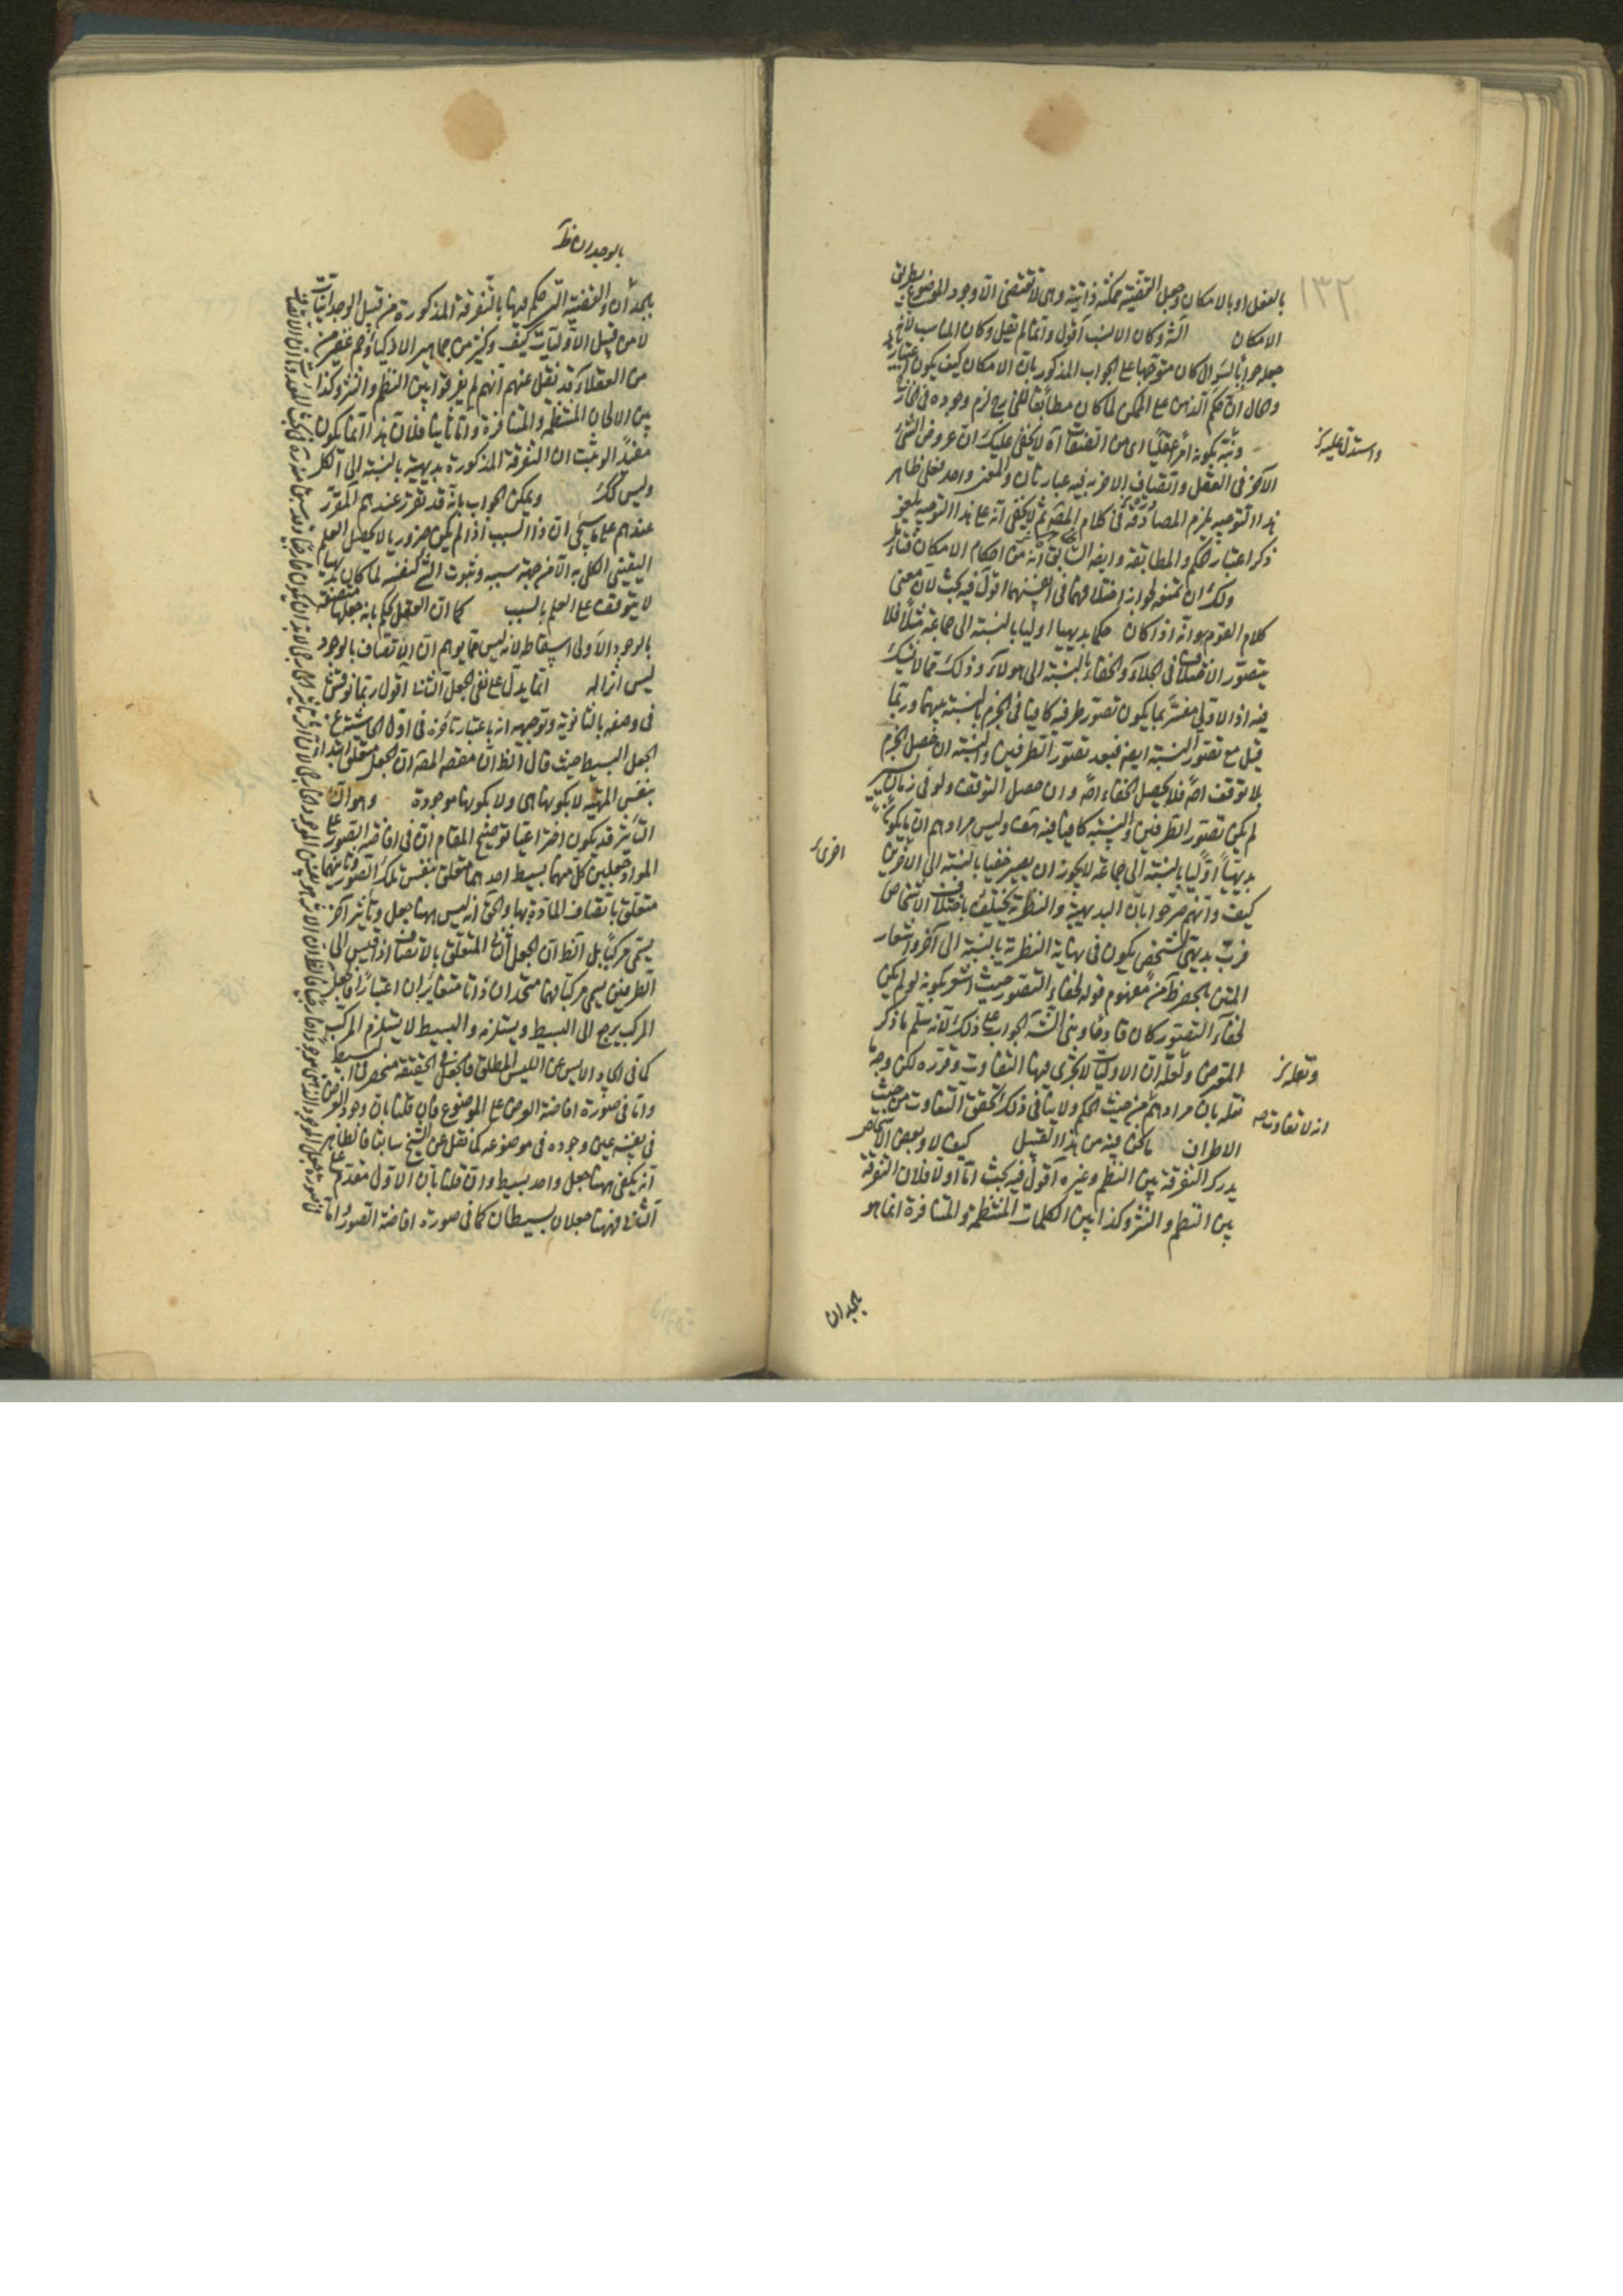 ١٣٢
بالفعل او بالامكان وجعل القضية ممكنة ذاتية وهى لا تقتضى الا وجود الموضوع بطريق
الامكان آلة وكان الانسب اقول وانما لم يقل وكان المناسب لانه
جعله جوابا لسؤال كان متوجها على الجواب المذكور بان الامكان كيف يكون
وحال ان حكم الذهن على الممكن لما كان مطابقا للخارج لزم وجوده فى الخارج
واستدل عليه
وثبته بكونه امرا عقليا اى من لا يخفى عليك ان عروض الشئ
الآخر فى العقل واتصاف الاخر به فيه عبارتان والمعنى واحد فعلى ظاهر
هذا التوجيه يلزم المصادرة فى كلام المص ثم لا يخفى انه على هذا التوجيه يلغو
ذكر اعتبار الحكم والمطابقة وايضا السابق انه من احكام الامكان فتأمل
ولك ان تمنعه لجواز اختلافهما فى انفسهما اقول فيه بحث لان معنى
كلام القوم هو انه اذا كان حكما بديهيا اوليا بالنسبة الى جماعة مثلا فلا
يتصور الاختلاف فى الجلاء والخفاء بالنسبة الى هؤلاء وذلك مما لا شك
فيه اذ الاولى مفسر بما يكون تصور طرفيه كافيا فى الجزم بالنسبة بينهما وربما
قيل مع تصور النسبة ايضا فبعد تصور الطرفين والنسبة ان حصل الجزم
بلا توقف اصلا فلا يحصل الخفاء اصلا وان حصل التوقف ولو فى زمان يسير
لم يكن تصور الطرفين والنسبة كافيا فيه هف وليس مرادهم ان ما يكون
بديهيا اوليا بالنسبة الى جماعة لا يجوز ان يصير خفيا بالنسبة الى الآخرين
اخرى
كيف وانهم صرحوا بان البديهية والنظرية تختلف باختلاف الاشخاص
فرب بديهى لشخص يكون فى نهاية النظرية بالنسبة الى آخر واشعار
المتن بالحصر ظ من مفهوم قوله لخفاء التصور حيث اشعر بكونه لو لم يكن
لخفاء التصور كان قادحا وبنى الش الجواب على ذلك لانه سلم ما ذكر
المعترض ونقله ان الاوليات لا يجرى فيها التفاوت وقرره لكن وجه
ونقله
نقله بان مرادهم من حيث الحكم ولا ينافى ذلك تحقق التفاوت من حيث
انه لا تفاوت
الاطراف ما نحن فيه من هذا القبيل كيف لا وبعض الاشخاص
يدرك التفرقة بين النظم وغيره اقول فيه بحث اما اولا فلان التفرقة
بين النظم والنثر وكذا بين الكلمات المنتظمة والمتنافرة انما هو
بالوجدان ظ
يجد ان والقضية التى حكم فيها بالتفرقة المذكورة من قبيل الوجدانيات
لا من قبيل الاوليات كيف وكثير من جماهير الاذكياء وجم غفير من
من العقلاء قد نقل عنهم انهم لم يفرقوا بين النظم والنثر وكذا
بين الالحان المنتظمة والمتنافرة واما ثانيا فلان هذا انما يكون
مفيدا لو ثبت ان التفرقة المذكورة بديهية بالنسبة الى الكل
وليس كك ويمكن الجواب بانه قد تقرر عندهم المقرر
عندهم على ما سيجئ ان ذا السبب اذا لم يكن ضروريا لا يحصل العلم
اليقينى الكلى به الا من جهة سببه وثبوت الشئ لنفسه لما كان بديهيا
لا يتوقف على العلم بالسبب كما ان العقل يحكم بانه جعلها متصفة
بالوجود الاولى اسقاطه لانه ليس مما يوهم ان الاتصاف بالوجود
ليس اثرا له انما يدل على نفى الجعل الثانى اقول ربما نوقش
فى وصفه بالثانوية وتوجيهه انه باعتبار تأخره فى اول الحاشية عن
الجعل البسيط حيث قال الظ ان مقص المص ان الجعل متعلق ابتداء
بنفس المهية لا بكونها هى ولا بكونها موجودة وهو ان
التأثير قد يكون اختراعيا توضيح المقام ان فى افاضة الصور على
المواد جعلين كل منهما بسيط احدهما متعلق بنفس تلك الصور وثانيهما
متعلق باتصاف المادة بها والحق انه ليس ههنا جعل وتأثير آخر
يسمى مركبا بل الظ ان الجعل الثانى المتعلق بالاتصاف اذا قيس الى
الطرفين يسمى مركبا فهما متحدان ذاتا متغايران اعتبارا فالجعل
المركب يرجع الى البسيط ويستلزمه والبسيط لا يستلزم المركب
كما فى ايجاد الايس عن الليس المطلق فالجعل فى الحقيقة منحصر فى البسيط
واما فى صورة افاضة العرض على الموضوع فان قلنا بان وجود العرض
فى نفسه عين وجوده فى موضوعه كما نقل عن الشيخ سابقا فالظاهر
انه يكفى ههنا جعل واحد بسيط وان قلنا بان الاول مقدم على
الثانى فههنا جعلان بسيطان كما فى صورة افاضة الصور واما
يجد ان